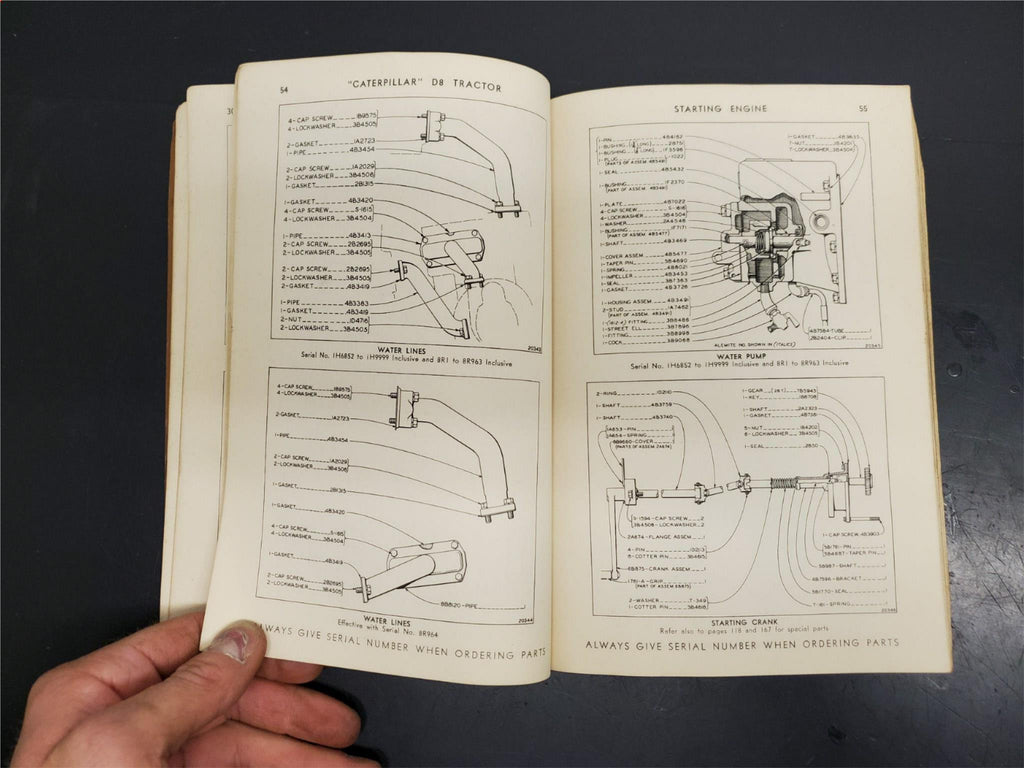 30
54
"CATERPILLAR" D8 TRACTOR
4-CAP SCREW 1B9575
4-LOCKWASHER 3B4505
2-GASKET 1A2723
1-PIPE 4B3454
2-CAP SCREW 1A2029
2-LOCKWASHER 3B4506
1-GASKET 2B1315
1-GASKET 4B3420
4-CAP SCREW S-1615
4-LOCKWASHER 3B4504
1-PIPE 4B3413
2-CAP SCREW 2B2695
2-LOCKWASHER 3B4505
2-CAP SCREW 2B2695
2-LOCKWASHER 3B4505
2-GASKET 4B3419
1-PIPE 4B3383
1-GASKET 4B3419
2-NUT 1D4716
2-LOCKWASHER 3B4505
20343
WATER LINES
Serial No. 1H6852 to 1H9999 Inclusive and 8R1 to 8R963 Inclusive
4-CAP SCREW 1B9575
4-LOCKWASHER 3B4505
2-GASKET 1A2723
1-PIPE 4B3454
2-CAP SCREW 1A2029
2-LOCKWASHER 3B4506
1-GASKET 2B1315
1-GASKET 4B3420
4-CAP SCREW
4-LOCKWASHER 3B4504
1-GASKET 4B3419
2-CAP SCREW 2B2695
2-LOCKWASHER 3B4505
8B8120-PIPE
20344
WATER LINES
Effective with Serial No. 8R964
ALWAYS GIVE SERIAL NUMBER WHEN ORDERING PARTS
STARTING ENGINE
55
1-PIN 4B4182
1-BUSHING LONG) 2B751
1-BUSHING LONG) 1F5596
1-PLUG L-1022
(PARTS OF ASSEM. 4B5491)
1-SEAL 4B5432
1-BUSHING 1F2370
1-PLATE 4B7022
4-CAP SCREW S-1616
4-LOCKWASHER 3B4504
1-WASHER 2A4546
1-BUSHING 1F7171
(PART OF ASSEM. 4B5477)
1-SHAFT 4B3469
1-COVER ASSEM. 4B5477
1-TAPER PIN 5B4690
1-SPRING 4B8021
1-IMPELLER 4B3453
1-SEAL 3B7363
1-GASKET 4B3728
1-HOUSING ASSEM. 4B3491
2-STUD 1A7462
(PART OF ASSEM. 4B3491)
FITTING 3B8486
1-STREET ELL 3B7896
1-FITTING 3B8998
1-COCK 3B9068
1-GASKET 4B9635
7-NUT 1B4201
7-LOCKWASHER 3B4504
4B7584-TUBE
2B2404-CLIP
ALEMITE NO. SHOWN IN (ITALICS)
20345
WATER PUMP
Serial No. 1H6852 to 1H9999 Inclusive and 8R1 to 8R963 Inclusive
2-RING 1D2110
1-SHAFT 4B3759
1-SHAFT 4B3740
1A653-PIN
2A654-SPRING
COVER
1-GEAR 7B5943
1-KEY 1B8708
1-SHAFT 2A2323
1-GASKET 4B7581
5-NUT 1B4202
LOCKWASHER 3B4505
1-SEAL 2850
S-1594-CAP SCREW 2
3B4508-LOCKWASHER 2
2A674-FLANGE ASSEM. 1
4-PIN 1D213
8-COTTER PIN 3B4615
6B875-CRANK ASSEM. 1
1781-A-GRIP 1
2-WASHER T-349
1-COTTER PIN 3B4618
1-CAP SCREW 4B3903
5B1781-PIN 1
5B4687-TAPER PIN 1
5B987-SHAFT 1
4B7596-BRACKET 1
5B1770-SEAL 1
7-181-SPRING 1
20346
STARTING CRANK
Refer also to pages 118 and 167 for special parts
ALWAYS GIVE SERIAL NUMBER WHEN ORDERING PARTS